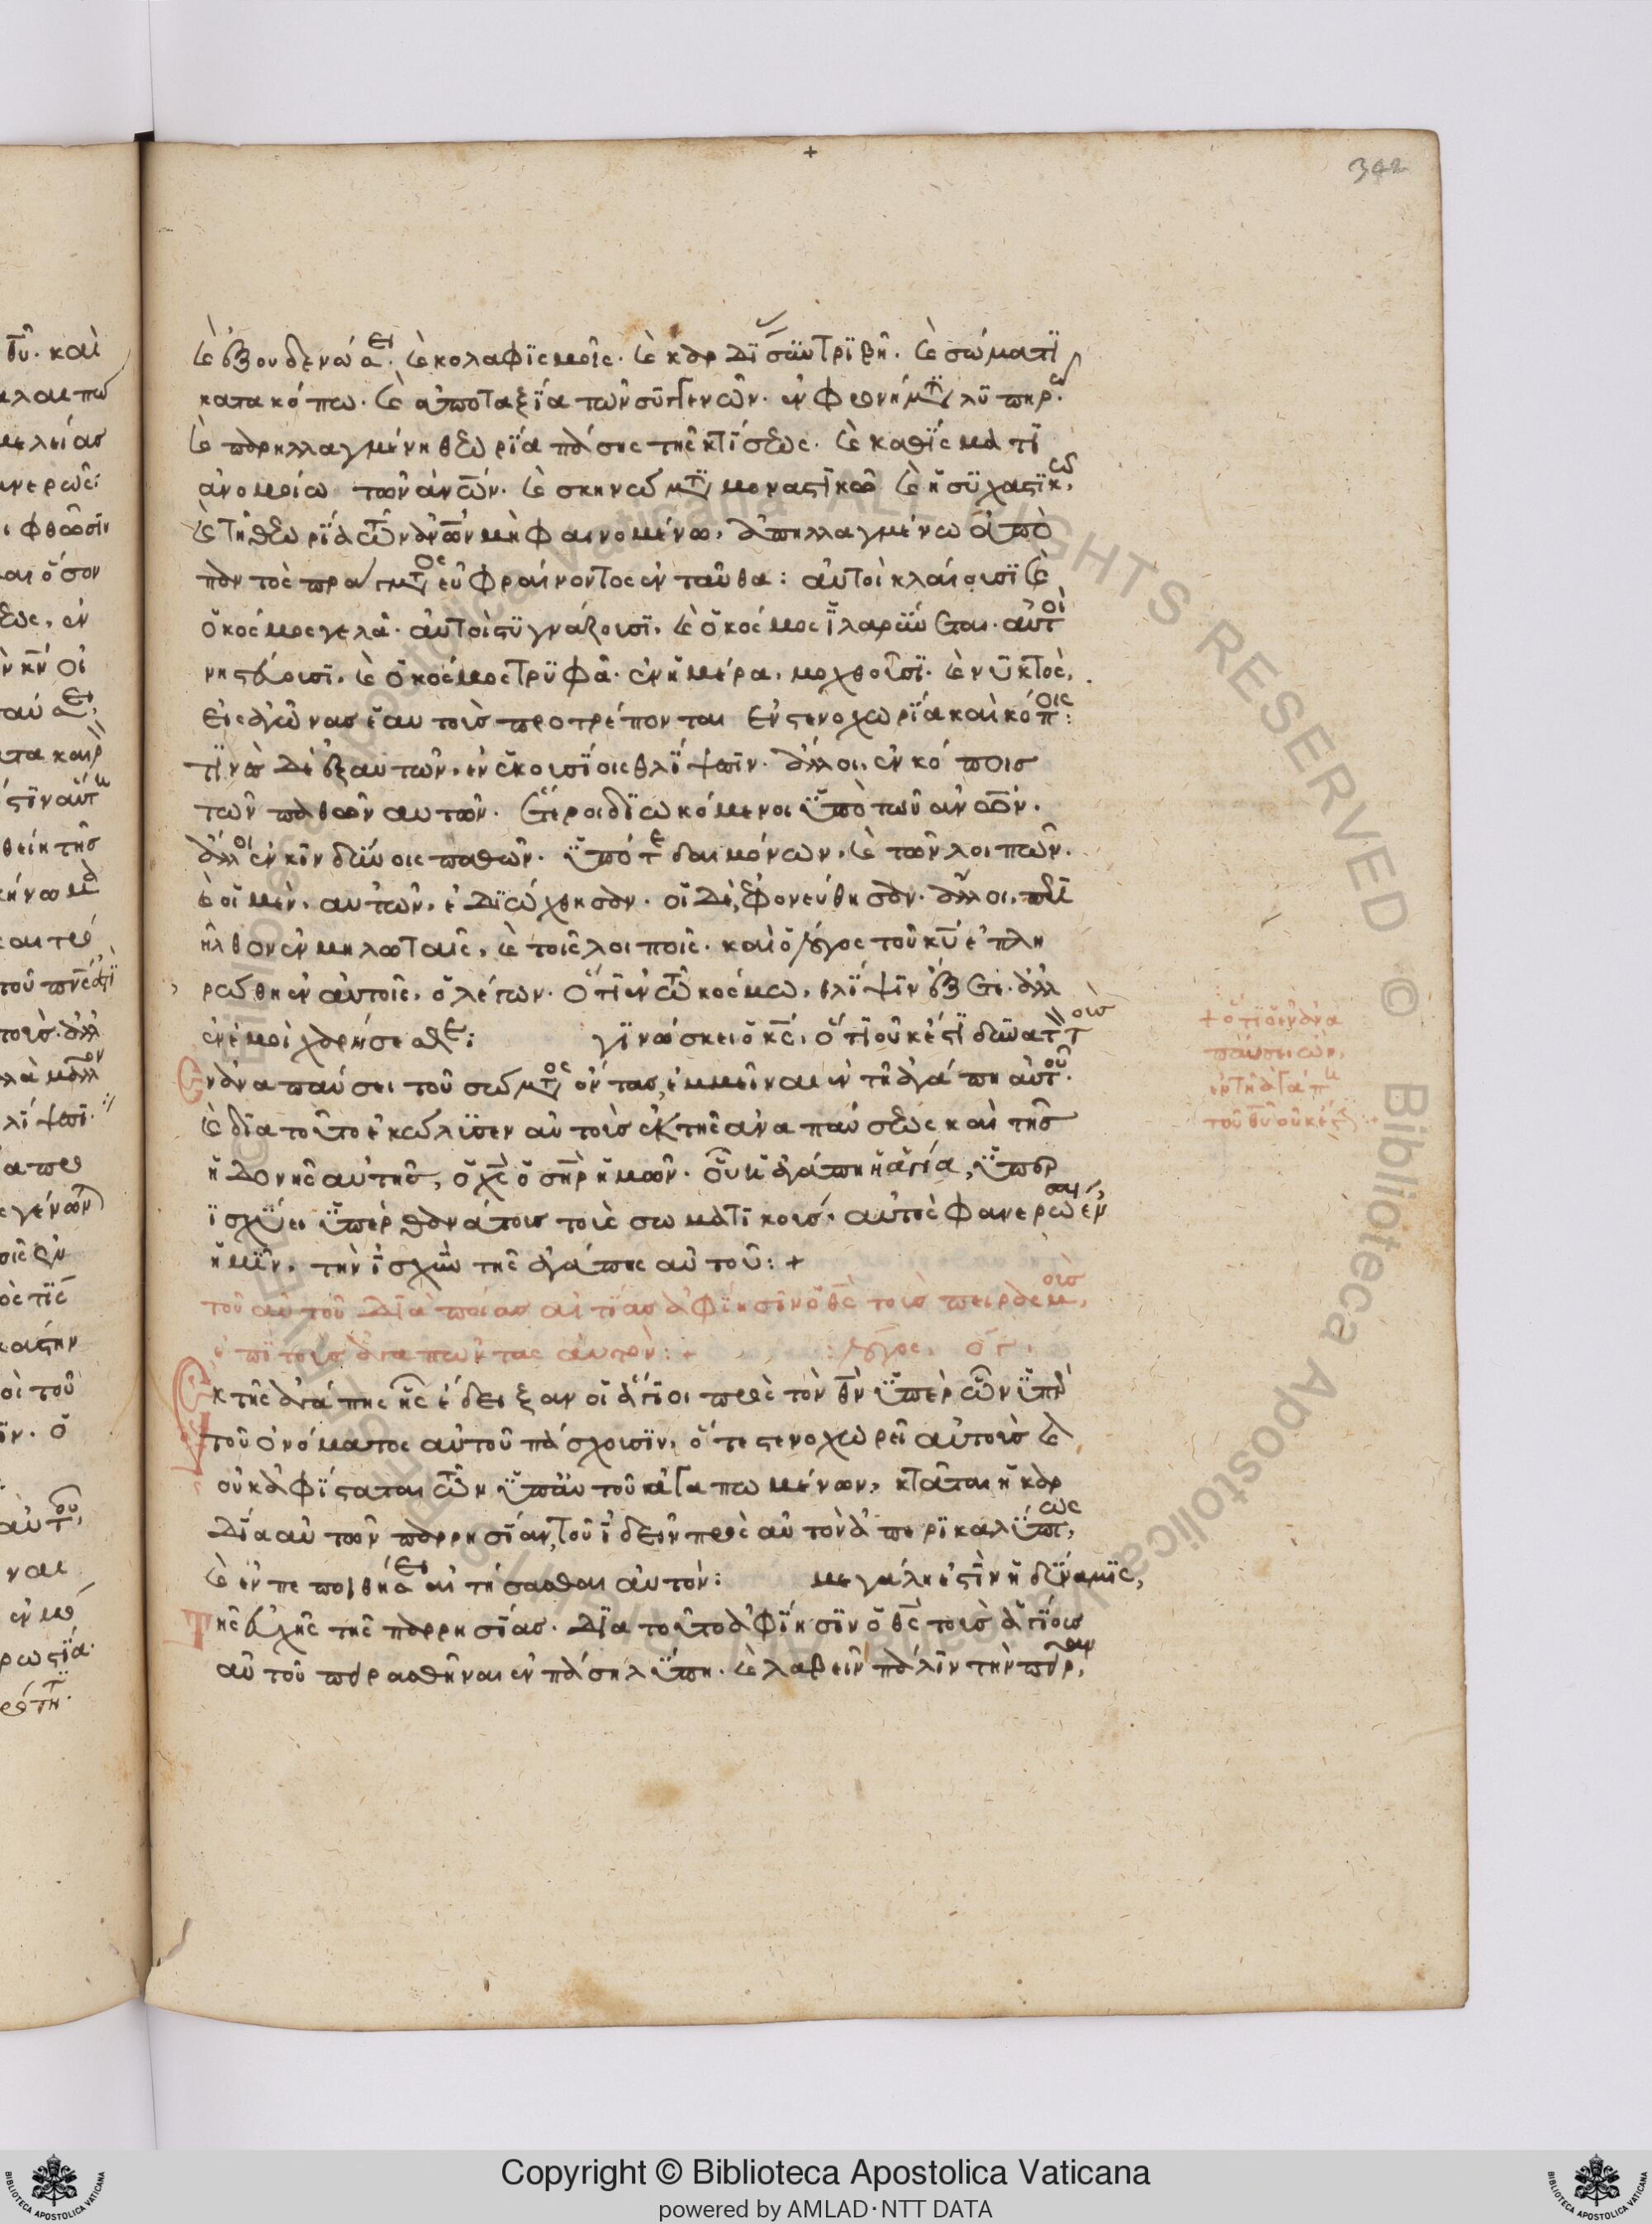 +
342
καὶ ἐξουδενώσει. καὶ κολαφισμοῖς. καὶ καρδίᾳ συντριβῆ. καὶ σώματι
κατακόπω. καὶ ἀποταξία τῶν συγγενῶν. ἐν φρονήματι λυπηρῶ.
καὶ παρηλλαγμένη θεωρία πάσης τῆς κτίσεως. καὶ καθίσματι
ἀνομοίω τῶν ἀνῶν. καὶ σκηνώματι μοναστικῶ καὶ ἡσυχαστικῶ,
καὶ τῆ θεωρία τῶν ἀνῶν μὴ φαινομένω, ἀπηλλαγμένω ἀπὸ
παντὸς πράγματος εὐφραίνοντος ἐνταῦθα: αὐτοὶ κλαίουσι καὶ
ὁ κόσμος γελᾶ. αὐτοὶ στυγνάζουσι, καὶ ὁ κόσμος ἱλαρύνεται. αὐτοὶ
νηστεύουσι, καὶ ὁ κόσμος τρυφᾶ. ἐν ἡμέρα, μοχθοῦσι. καὶ νυκτὸς,
εἰς ἀγῶνας ἑαυτοὺς προτρέπονται ἐν στενοχωρία καὶ κόποις:
τινὲς δὲ ἐξ αυτῶν, ἐν ἑκουσίοις θλίψεσιν. ἄλλοι, ἐν κόποις
τῶν παθῶν αυτῶν. ἕτεροι διωκόμενοι ὑπὸ τῶν ἀνῶν.
ἄλλοι ἐν κινδύνοις παθῶν. ὑπό τε δαιμόνων, καὶ τῶν λοιπῶν.
καὶ οἱ μὲν, αυτῶν, ἐδιώχθησαν. οἱ δὲ, ἐφονεύθησαν. ἄλλοι, περι
ῆλθον ἐν μηλωταῖς, καὶ τοῖς λοιποῖς. καὶ ὁ λόγος τοῦ κυ ἐπλη
ρώθη ἐν αὐτοῖς, ὁ λέγων. ὅτι ἐν τῶ κόσμω, θλίψιν ἕξετε. ἀλλ
ἐν ἐμοὶ χαρήσεσθε: γινώσκει ὁ κς, ὅτι οὐκ ἔστι δυνατὸν τοὺς
ἐν ἀναπαύσει τοῦ σώματος ὄντας, ἐμμεῖναι ἐν τῆ ἀγάπη αὐτοῦ.
καὶ διατοῦτο ἐκώλυσεν αὐτοὺς ἐκ τῆς αναπαύσεως καὶ τῆς
ἡδονῆς αυτῆς, ὁ χς ὁ σηρ ἡμῶν. οὗ ἡ ἀγάπη ἡ ἁγία, ὑπερ
ισχύει ὑπὲρ θανάτους τοὺς σωματικούς, αὐτὸς φανερώσαι ἐν
ἡμῖν, τὴν ἰσχὺν τῆς ἀγάπης αὐτοῦ: +
τοῦ αὐτοῦ διὰ ποίας αἰτίας ἀφίησιν ὁ θς τοὺς πειρασμοὺς,
ἐπὶ τοὺς ἀγαπῶντας αὐτόν: + : λόγος,
ἐκ τῆς ἀγάπης ἧς ἔδειξαν οἱ ἅγιοι πρὸς τὸν θν ὑπὲρ ὧν ὑπὲρ
τοῦ ὀνόματος αὐτοῦ πάσχουσιν, ὅτε στενοχωρεῖ αὐτοὺς καὶ
οὐκ ἀφίσταται τῶν ὑπ αὐτοῦ ἀγαπωμένων, κτᾶται ἡ καρ
δία αὐτῶν παρρησίαν, τοῦ ἰδεῖν πρὸς αὐτὸν ἀπερικαλύπτως,
καὶ ἐν πεποιθήσει αἰτήσασθαι αὐτόν: μεγάλη ἐστὶν ἡ δύναμις,
τῆς εὐχῆς τῆς παρρησίας. διατοῦτο ἀφίησιν ὁ θς τοὺς ἁγίους
αὐτοῦ πειρασθῆναι ἐν πάση λύπη. καὶ λαβεῖν πάλιν τὴν πεῖραν,
+ ὅτι ὁ ἐν ἀνα
παύσει ὢν,
ἐν τῆ ἀγάπη
τοῦ θυ οὐκ ἔστι +
Copyright © Biblioteca Apostolica Vaticana
powered by AMLAD·NTT DATA